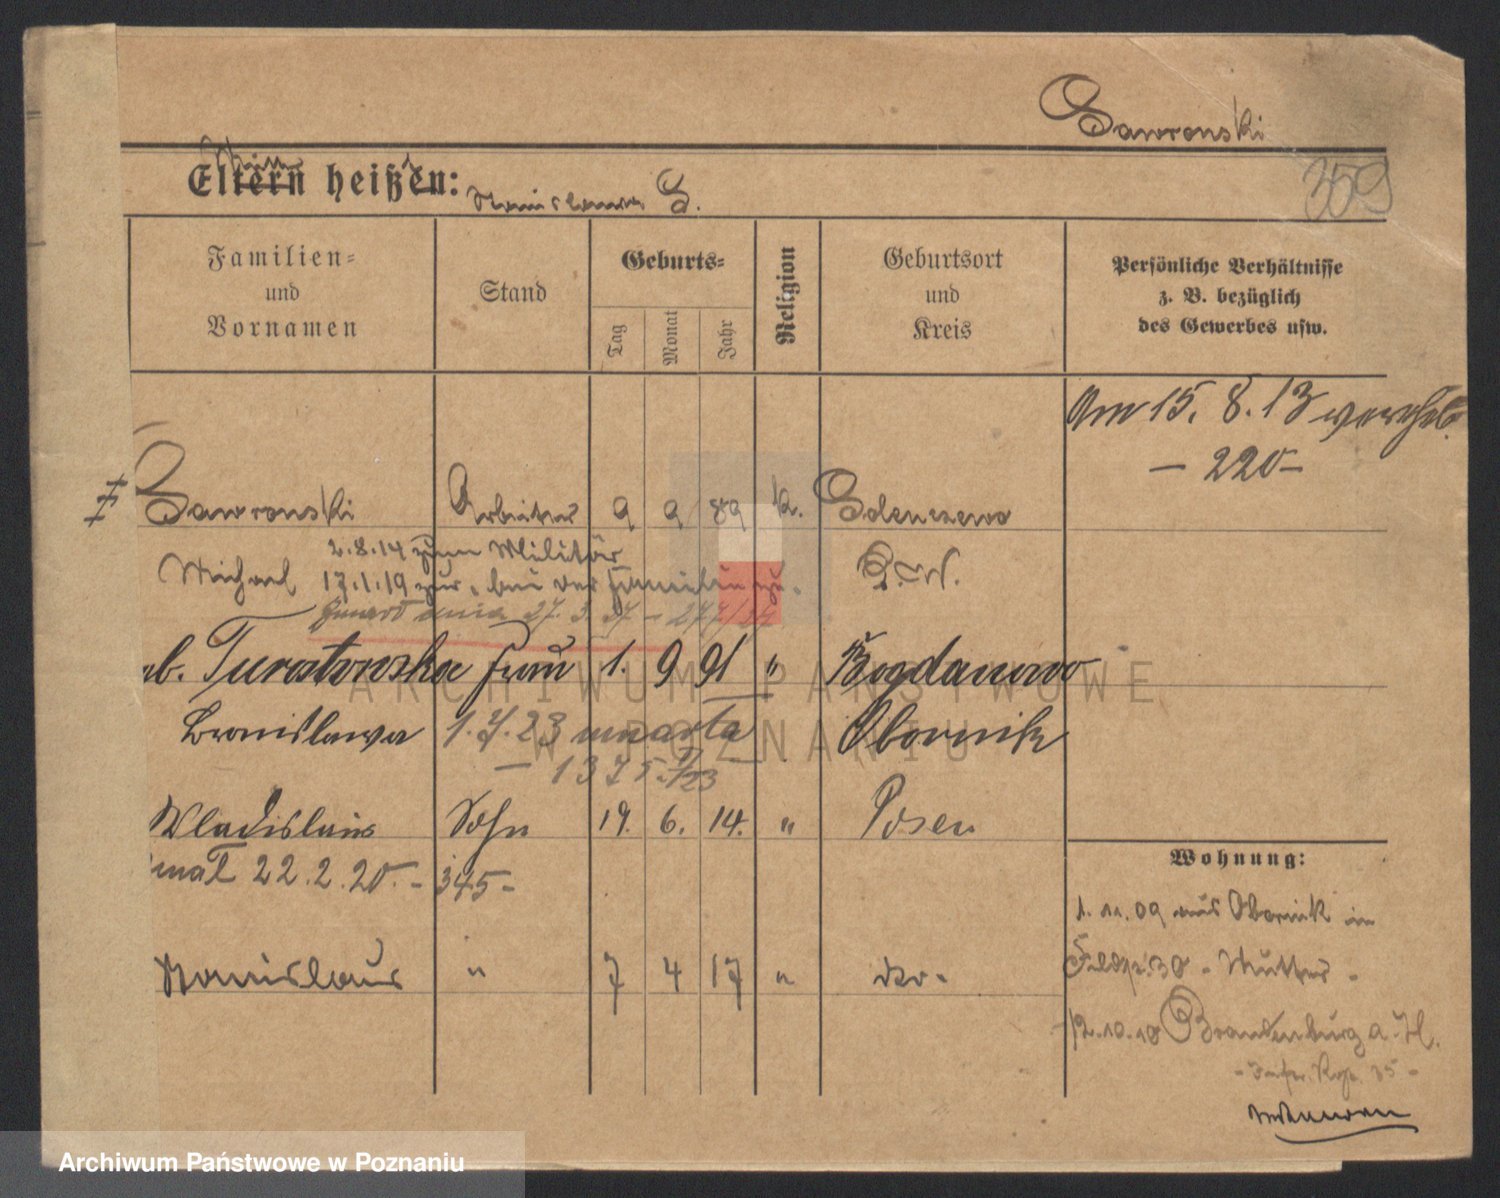 Gawronski
359
Eltern heißen:
Stanislaus G.
Familien-
und
Vornamen
Stand
Geburts-
Tag
Monat
Jahr
Religion
Geburtsort
und
Kreis
Persönliche Verhältnisse
z. B. bezüglich
des Gewerbes usw.
Am 15. 8. 13 verehel.
– 220 –
Gawronski Arbeiter 9 9 89 k.
2.8.14 zum Militär
Michael 17.1.19 zur. bei der Familie
27. 3. 37 –
Frau 1. 9 91 " Bogdanowo
Bronislawa 1.7.23 umarła Obornik
– 1375
Wladislaus Sohn 19. 6. 14. " Posen
22.2.20. – 345 –
Stanislaus " 7 4 17 " do.
Wohnung:
1. 11. 09 aus Obornik in
30 - Mutter -
12.10.10 Brandenburg a. H.
35 -
ARCHIWUM PAŃSTWOWE
W POZNANIU
Archiwum Państwowe w Poznaniu